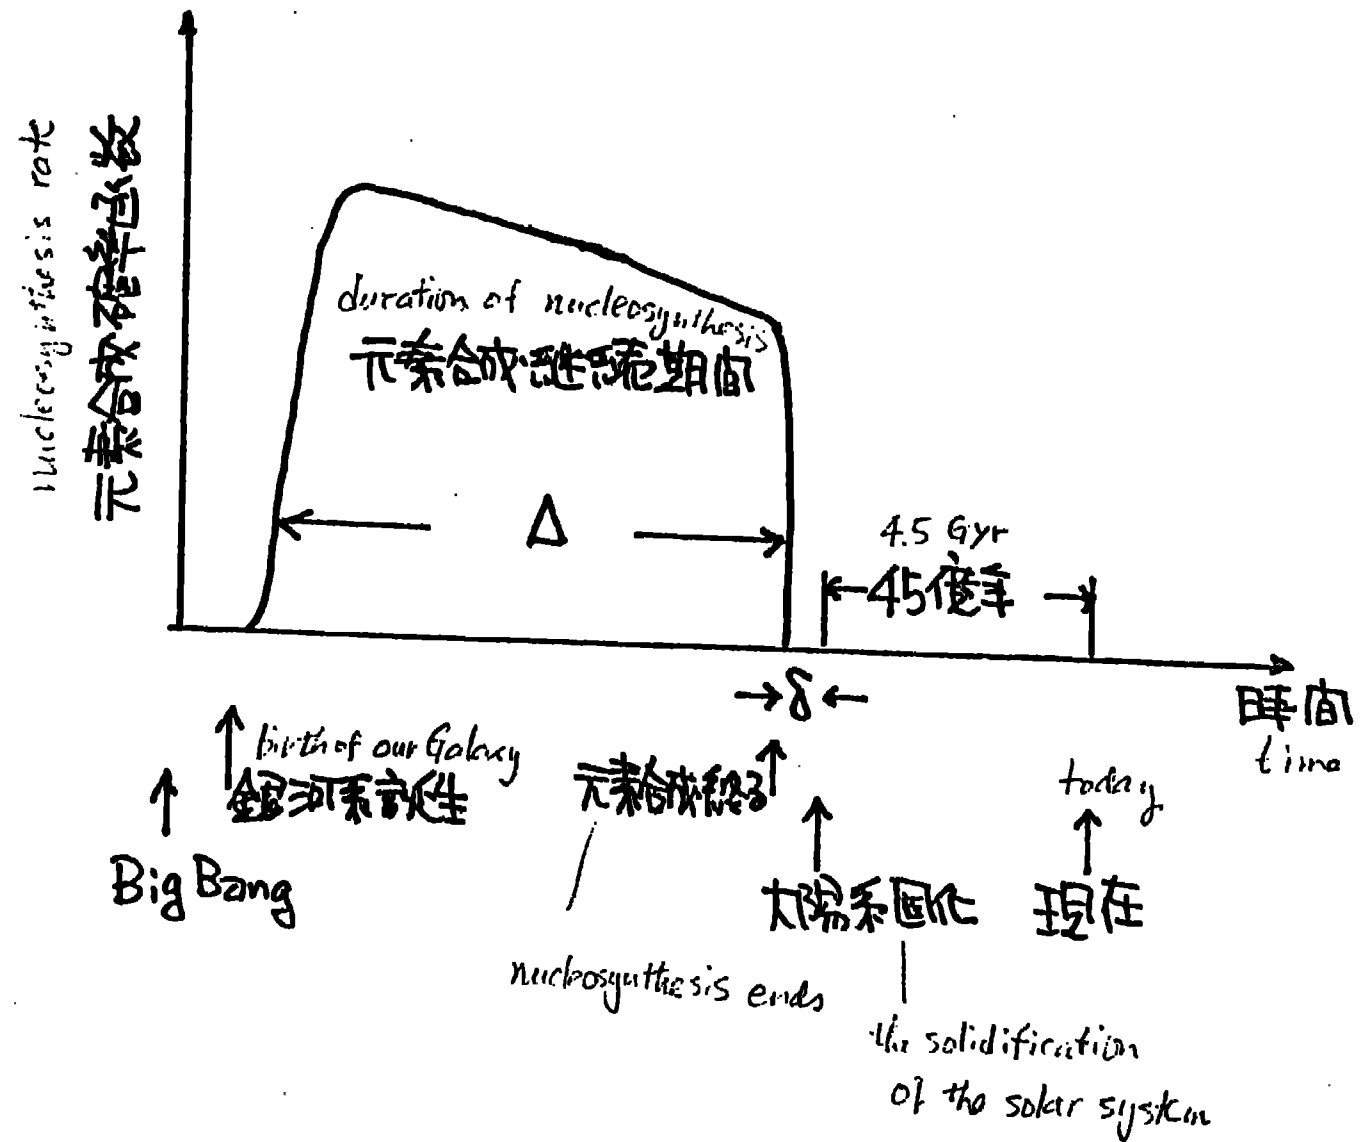 nucleosynthesis rate
元素合成確率函数
duration of nucleosynthesis
元素合成継続期間
Δ
4.5 Gyr
45億年
δ
時間
time
birth of our Galaxy
銀河系誕生
元素合成終了
today
Big Bang
太陽系固化
現在
nucleosynthesis ends
the solidification
of the solar system